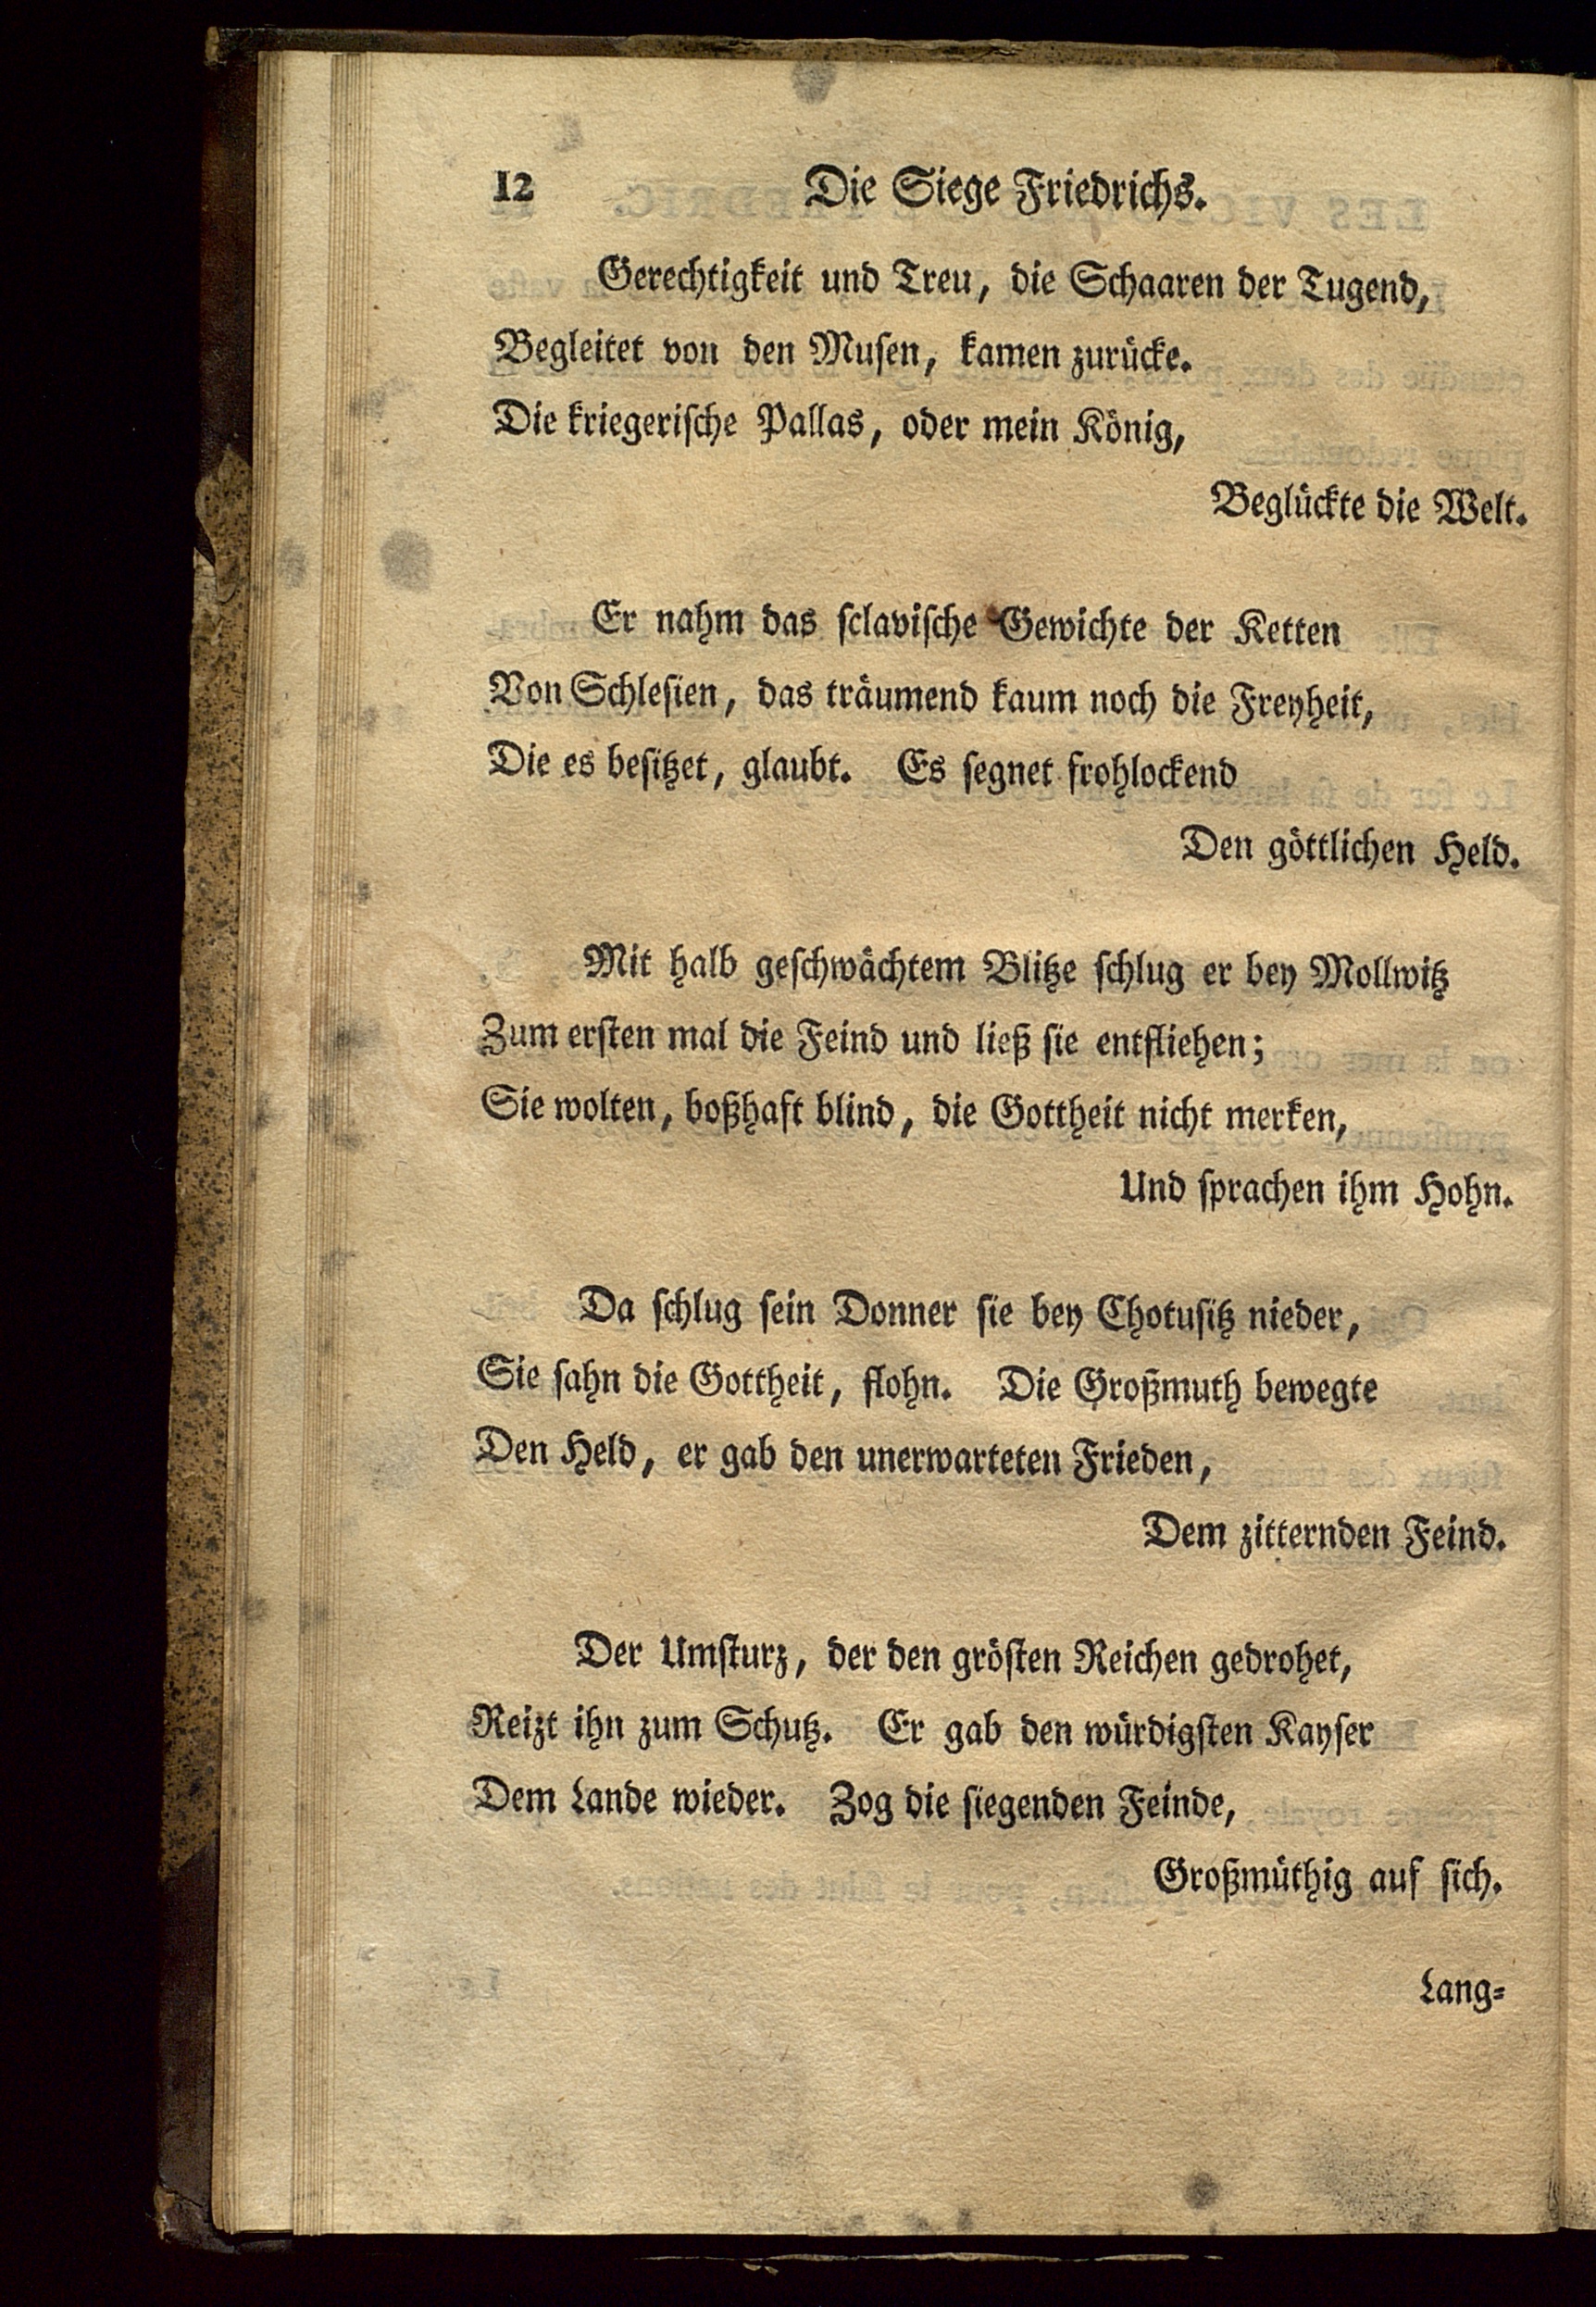 12 Die Siege Friedrichs.
Gerechtigkeit und Treu, die Schaaren der Tugend,
Begleitet von den Musen, kamen zurücke.
Die kriegerische Pallas, oder mein König,
Beglückte die Welt.
Er nahm das sclavische Gewichte der Ketten
Von Schlesien, das träumend kaum noch die Freyheit,
Die es besitzet, glaubt. Es segnet frohlockend
Den göttlichen Held.
Mit halb geschwächtem Blitze schlug er bey Mollwitz
Zum ersten mal die Feind und ließ sie entfliehen;
Sie wolten, boßhaft blind, die Gottheit nicht merken,
Und sprachen ihm Hohn.
Da schlug sein Donner sie bey Chotusitz nieder,
Sie sahn die Gottheit, flohn. Die Großmuth bewegte
Den Held, er gab den unerwarteten Frieden,
Dem zitternden Feind.
Der Umsturz, der den grösten Reichen gedrohet,
Reizt ihn zum Schutz. Er gab den würdigsten Kayser
Dem Lande wieder. Zog die siegenden Feinde,
Großmüthig auf sich.
Lang=